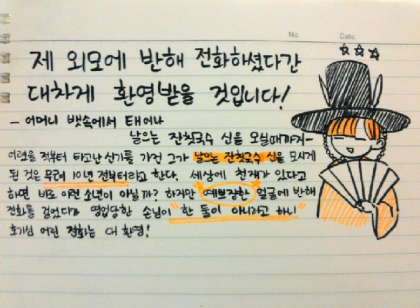 No.
Date.
제 외모에 반해 전화하셨다간
대차게 환영받을 것입니다!
- 어머니 뱃속에서 태어나
날으는 잔칫국수 신을 모실때까지-
어렸을 적부터 타고난 신기를 가진 고가 날으는 잔칫국수 신을 모시게
된 것은 무려 10년 전부터라고 한다. 세상에 천재가 있다고
하면 바로 이런 소년이 아닐까? 하지만 예쁘장한 얼굴에 반해
전화를 걸었다가 영업당한 손님이 "한 둘이 아니라고 하니"
호기심 어린 전화는 대 환영!